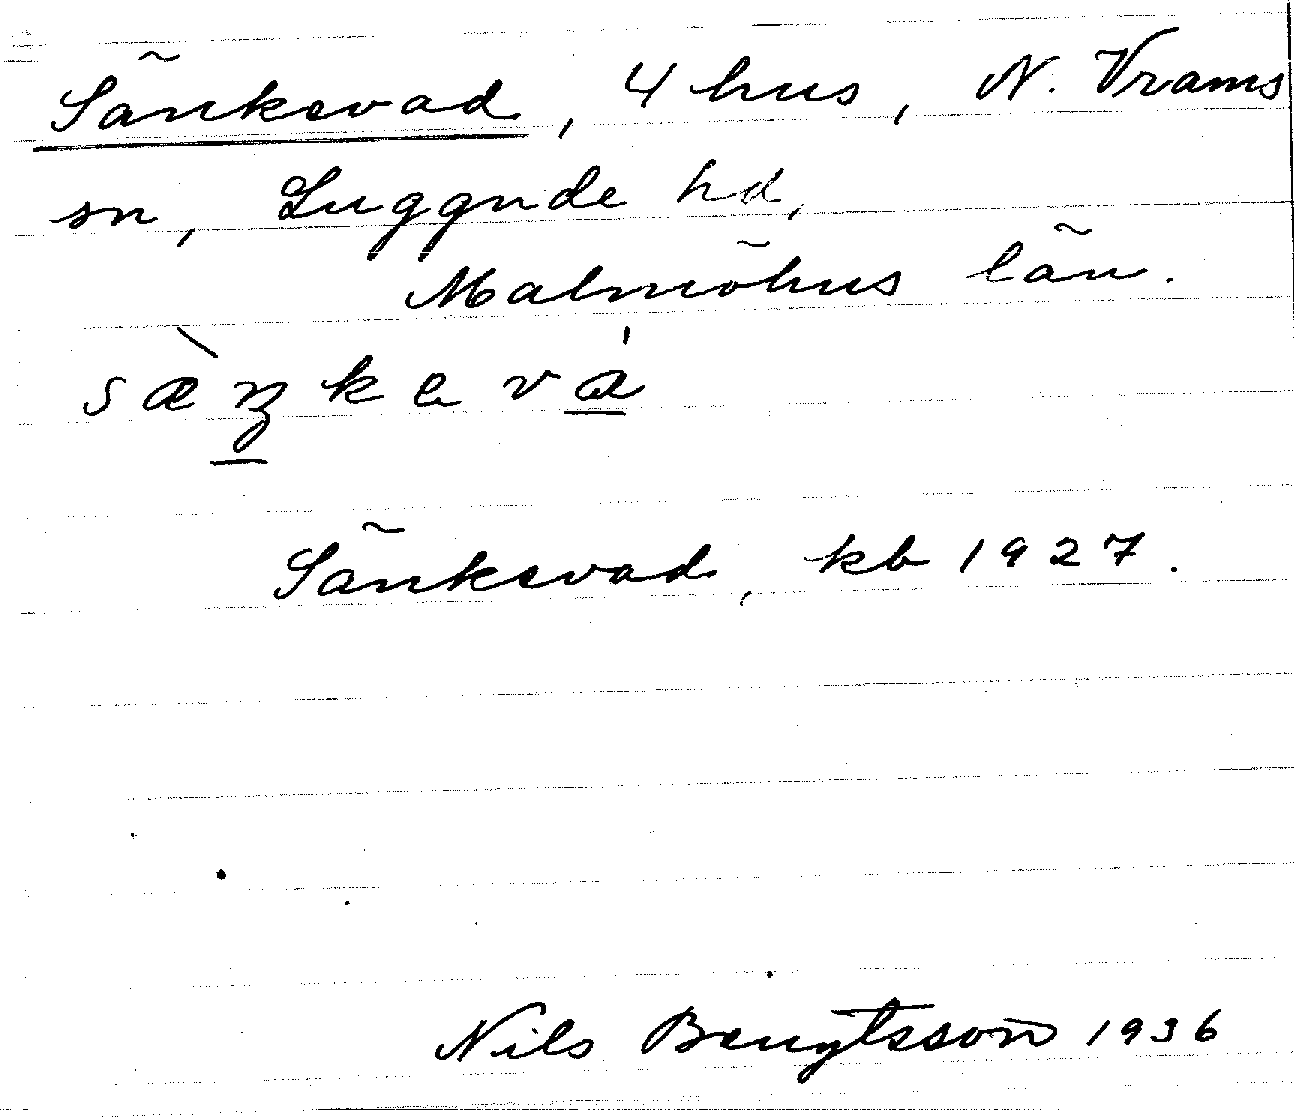 Sänkevad, 4 hus, N. Vrams
sn, Luggude hd,
Malmöhus län.
sæ̀ŋkevá
Sänkevad, kb 1927.
Nils Bengtsson 1936